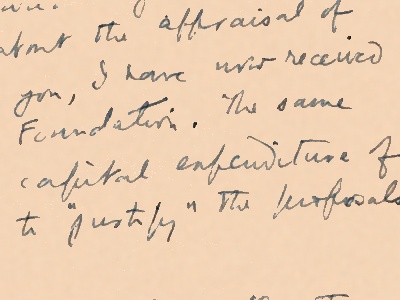 about the appraisal of
you, I have now received
Foundation. The same
capital expenditure of
to "justify" the proposals